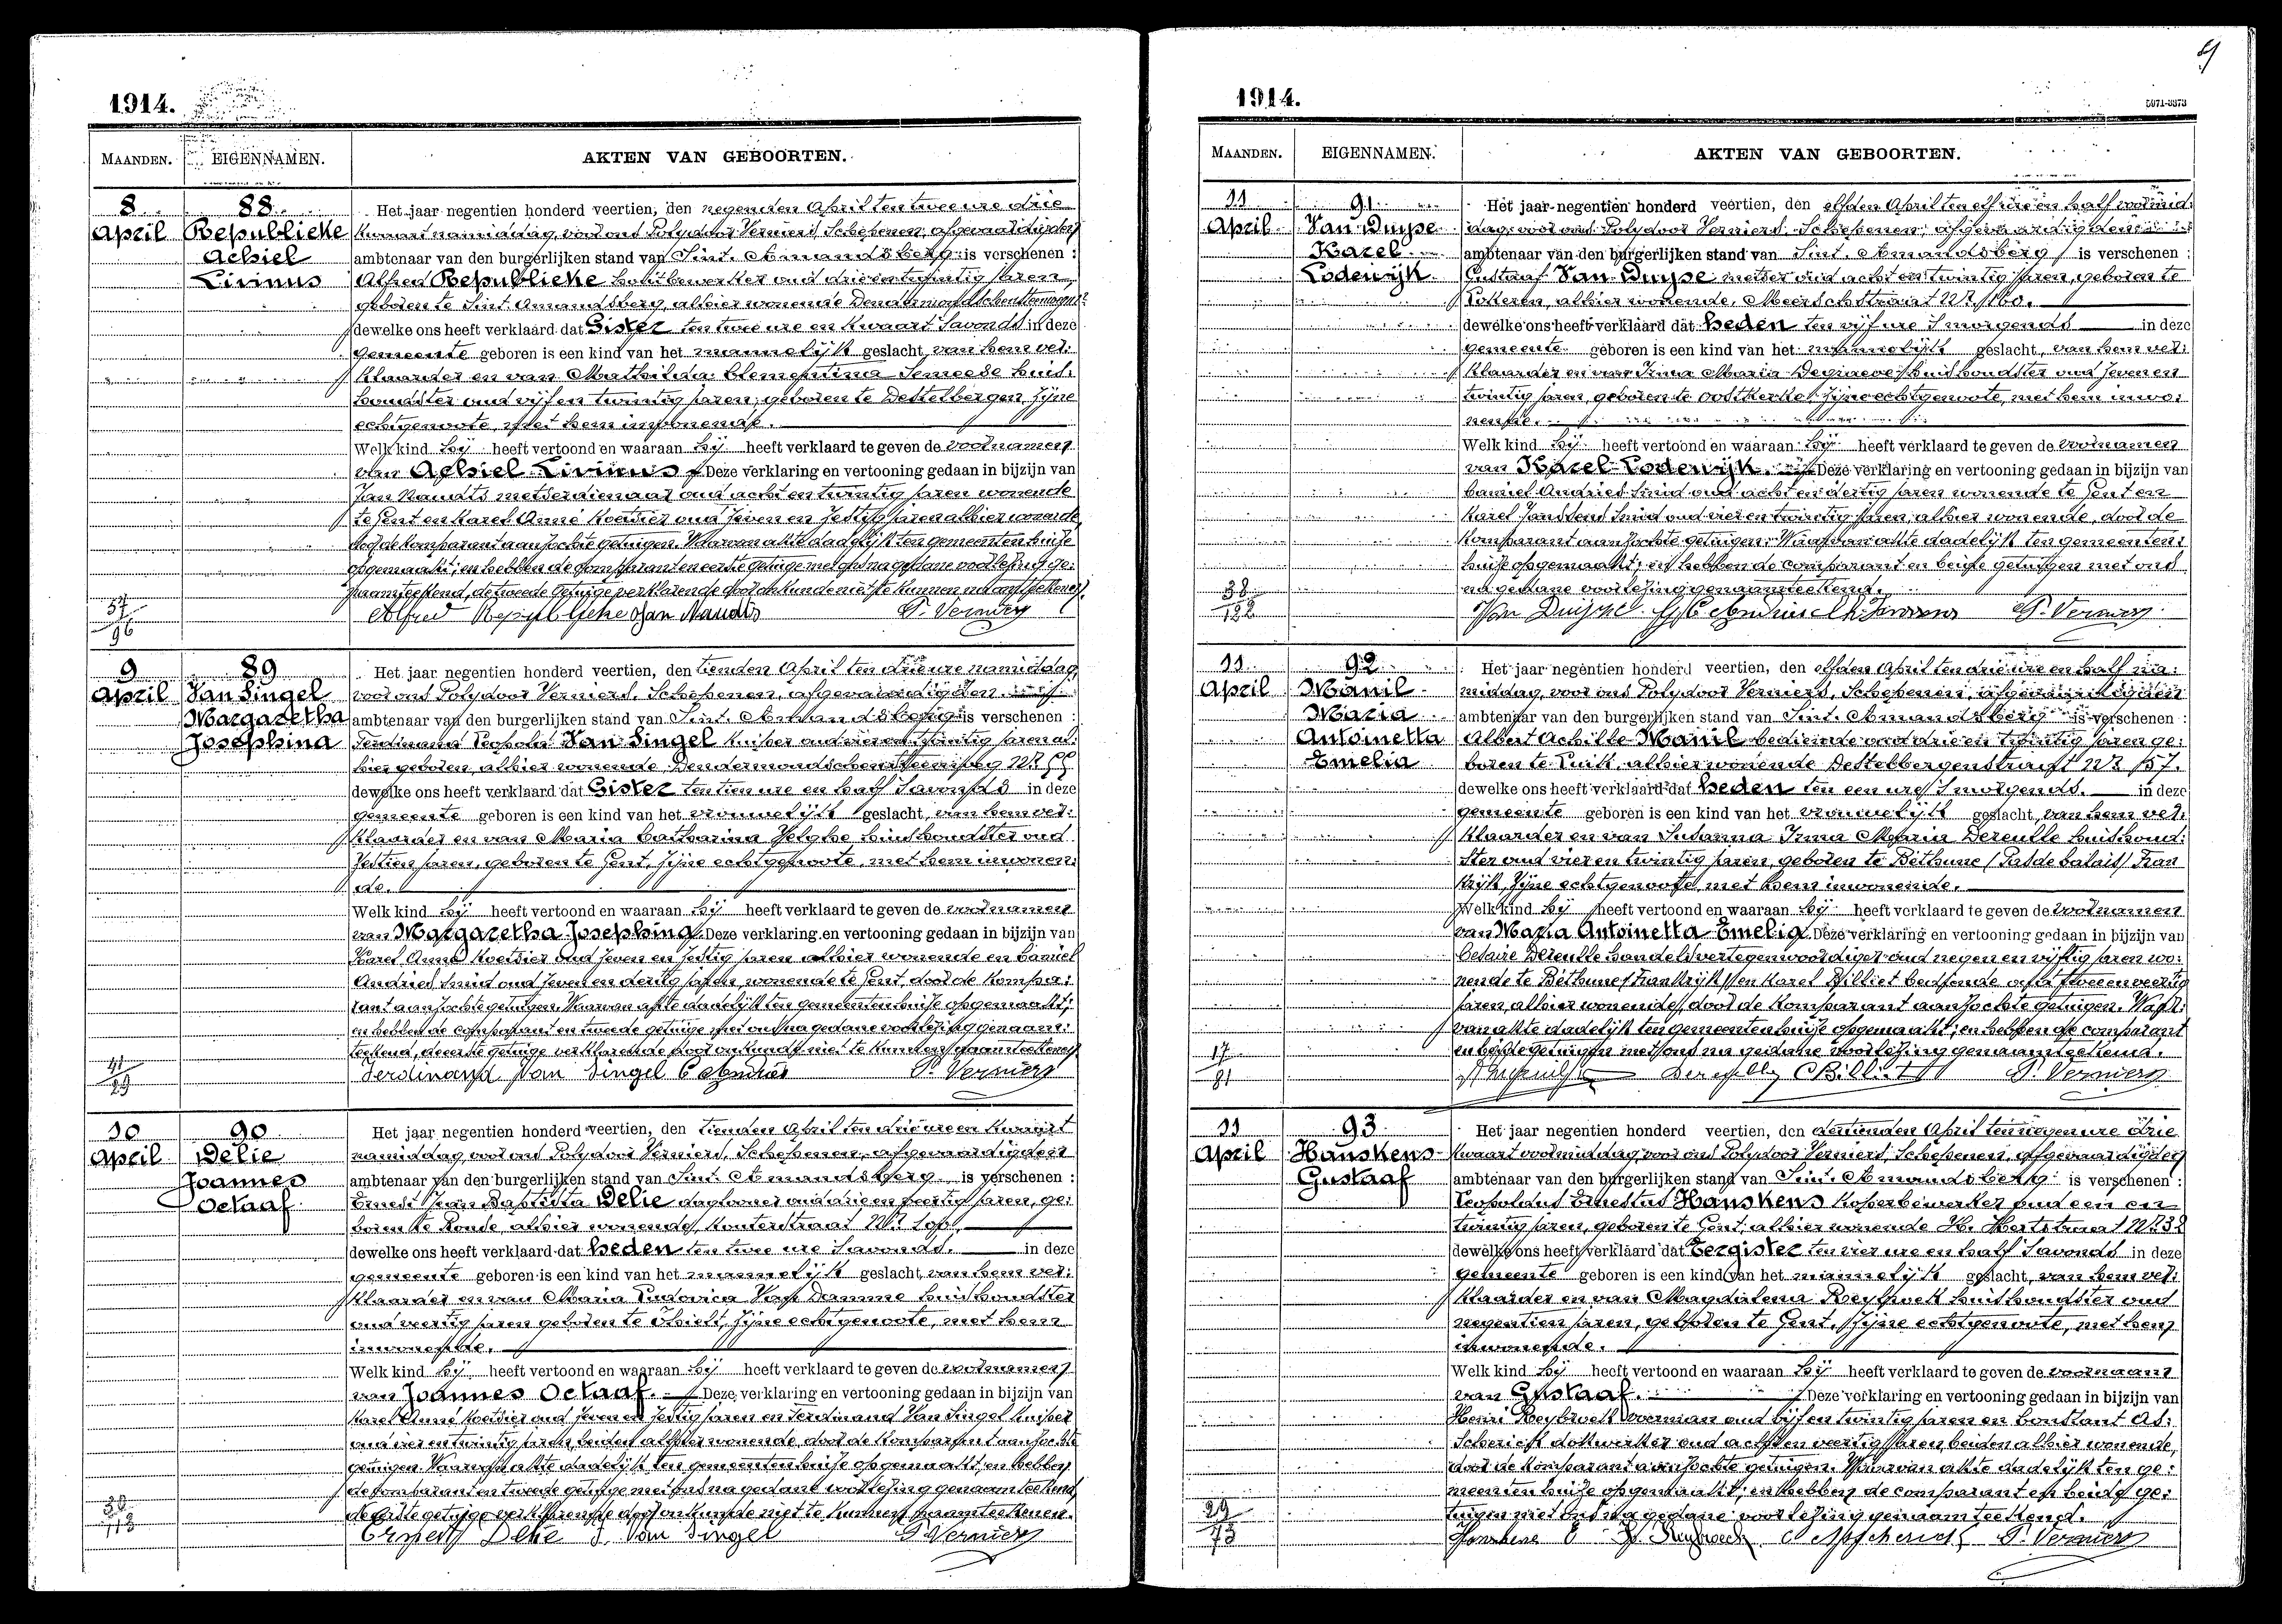 1914.
MAANDEN. EIGENNAMEN. AKTEN VAN GEBOORTEN.
8 April
88
Republieke
Achiel
Livinus
Het jaar negentien honderd veertien, den negenden April ten twee ure drie
kwaart namiddag, voor ons Polydoor Verniers, Schepenen, afgevaardigden
ambtenaar van den burgerlijken stand van Sint. Amandsberg is verschenen :
Alfred Republieke houtbewerker oud drie en twintig jaren,
geboren te Sint. Amandsberg, alhier wonende Dendermondschensteenweg
dewelke ons heeft verklaard dat Gister ten twee ure en kwaart 's avonds in deze
gemeente geboren is een kind van het mannelijk geslacht, van hem ver:
klaarder en van Mathilda Clementina Semeese huis:
houdster oud vijf en twintig jaren, geboren te Destelbergen, zijne
echtgenoote, met hem inwonende.
Welk kind hij heeft vertoond en waaraan hij heeft verklaard te geven de voornamen
van Achiel Livinus Deze verklaring en vertooning gedaan in bijzijn van
Jan Naudts metserdienaar oud acht en twintig jaren wonende
te Gent en Karel Anné koetsier oud zeven en zestig jaren alhier wonende
door de komparant aanzochte getuigen. Waarvan akte dadelijk ten gemeentenhuize
opgemaakt; en hebben de comparant en eerste getuige met ons na gedane voorlezing ge:
naamteekend, de tweede getuige verklarende door onkunde niet te kunnen naamteekenen.
57
96
Alfred Republieke Jan Naudts P. Verniers
9 April
89
Van Singel
Margaretha
Josephina
Het jaar negentien honderd veertien, den tienden April ten drie ure namiddag,
voor ons Polydoor Verniers, Schepenen, afgevaardigden
ambtenaar van den burgerlijken stand van Sint. Amandsberg is verschenen :
Ferdinand Leopold Van Singel kuiper oud vier en twintig jaren al:
hier geboren, alhier wonende Dendermondschensteenweg Nr
dewelke ons heeft verklaard dat Gister ten tien ure en half 's avonds in deze
gemeente geboren is een kind van het vrouwelijk geslacht, van hem ver:
klaarder en van Maria Catharina Velghe huishoudster oud
zestien jaren, geboren te Gent, zijne echtgenoote, met hem inwonen:
de.
Welk kind hij heeft vertoond en waaraan hij heeft verklaard te geven de voornamen
van Margaretha Josephina Deze verklaring en vertooning gedaan in bijzijn van
Karel Anné koetsier oud zeven en zestig jaren alhier wonende en Camiel
Andries smid oud zeven en dertig jaren wonende te Gent, door de kompa:
rant aanzochte getuigen. Waarvan akte dadelijk ten gemeentenhuize opgemaakt;
en hebben de comparant en tweede getuige met ons na gedane voorlezing genaam:
teekend, de eerste getuige verklarende door onkunde niet te kunnen naamteekenen.
41
29
Ferdinand Van Singel C Andries P. Verniers
10 April
90
Delie
Joannes
Octaaf
Het jaar negentien honderd veertien, den tienden April ten drie ure en kwaart
namiddag, voor ons Polydoor Verniers, Schepenen, afgevaardigden
ambtenaar van den burgerlijken stand van Sint. Amandsberg is verschenen :
Ernest Jean Baptista Delie daglooner oud drie en veertig jaren, ge:
boren te Ronse, alhier wonende, Kouterstraat Nr
dewelke ons heeft verklaard dat heden ten twee ure 's avonds, in deze
gemeente geboren is een kind van het mannelijk geslacht, van hem ver:
klaarder en van Maria Ludovica Van Damme huishoudster
oud veertig jaren geboren te Thielt, zijne echtgenoote, met hem
inwonende.
Welk kind hij heeft vertoond en waaraan hij heeft verklaard te geven de voornamen
van Joannes Octaaf. Deze verklaring en vertooning gedaan in bijzijn van
Karel Anné koetsier oud zeven en zestig jaren en Ferdinand Van Singel kuiper
oud vier en twintig jaren, beiden alhier wonende, door de komparant aanzochte
getuigen. Waarvan akte dadelijk ten gemeentenhuize opgemaakt, en hebben
de komparant en tweede getuige met ons na gedane voorlezing genaamteekend,
de eerste getuige verklarende door onkunde niet te kunnen naamteekenen.
38
113
Ernest Delie F. Van Singel P. Verniers
1914.
5971-3373
MAANDEN. EIGENNAMEN. AKTEN VAN GEBOORTEN.
11 April
91
Van Duyse
Karel
Lodewijk
Het jaar negentien honderd veertien, den elfden April ten elf ure en half voormid:
dag, voor ons Polydoor Verniers, Schepenen, afgevaardigden
ambtenaar van den burgerlijken stand van Sint. Amandsberg is verschenen :
Gustaaf Van Duyse metser oud acht en twintig jaren, geboren te
Lokeren, alhier wonende, Meerschstraat Nr 160.
dewelke ons heeft verklaard dat heden ten vijf ure 's morgends in deze
gemeente geboren is een kind van het mannelijk geslacht, van hem ver:
klaarder en van Irma Maria Degraeve huishoudster oud zeven en
twintig jaren, geboren te Oostkerke, zijne echtgenoote, met hem inwo:
nende.
Welk kind hij heeft vertoond en waaraan hij heeft verklaard te geven de voornamen
van Karel Lodewijk. Deze verklaring en vertooning gedaan in bijzijn van
Camiel Andries smid oud acht en dertig jaren wonende te Gent en
Karel Janssens smid oud vier en twintig jaren, alhier wonende, door de
komparant aanzochte getuigen. Waarvan akte dadelijk ten gemeenten:
huize opgemaakt; en hebben de comparant en beide getuigen met ons
na gedane voorlezing genaamteekend.
38
122
Van Duijse G. C Andries Ch Janssens P. Verniers
11 April
92
Manil
Maria
Antoinetta
Emelia
Het jaar negentien honderd veertien, den elfden April ten drie ure en half na:
middag, voor ons Polydoor Verniers, Schepenen, afgevaardigden
ambtenaar van den burgerlijken stand van Sint. Amandsberg is verschenen :
Albert Achille Manil bediende oud drie en twintig jaren ge:
boren te Luik, alhier wonende Destelbergenstraat Nr 57.
dewelke ons heeft verklaard dat heden ten een ure 's morgends. in deze
gemeente geboren is een kind van het vrouwelijk geslacht, van hem ver:
klaarder en van Susanna Irma Maria Dereulle huishoud:
ster oud vier en twintig jaren, geboren te Béthune (Pas de Calais) Fran
krijk, zijne echtgenoote, met hem inwonende.
Welk kind hij heeft vertoond en waaraan hij heeft verklaard te geven de voornamen
van Maria Antoinetta Emelia Deze verklaring en vertooning gedaan in bijzijn van
Cesaire Dereulle handelsvertegenwoordiger oud negen en vijftig jaren wo:
nende te Béthune (Frankrijk) en Karel Billiet bediende oud twee en veertig
jaren, alhier wonende, door de komparant aanzochte getuigen. Waar:
van akte dadelijk ten gemeentenhuize opgemaakt; en hebben de comparant
en beide getuigen met ons na gedane voorlezing genaamteekend.
17
81
Dereulle C Billiet P. Verniers
11 April
93
Hanskens
Gustaaf
Het jaar negentien honderd veertien, den dertienden April ten negen ure drie
kwaart voormiddag, voor ons Polydoor Verniers, Schepenen, afgevaardigden
ambtenaar van den burgerlijken stand van Sint. Amandsberg is verschenen :
Leopoldus Ernestus Hanskens koperbewerker oud een en
twintig jaren, geboren te Gent, alhier wonende H. Hartstraat Nr 38
dewelke ons heeft verklaard dat Eergister ten vier ure en half 's avonds in deze
gemeente geboren is een kind van het mannelijk geslacht, van hem ver:
klaarder en van Magdalena Reybroek huishoudster oud
negentien jaren, geboren te Gent, zijne echtgenoote, met hem
inwonende.
Welk kind hij heeft vertoond en waaraan hij heeft verklaard te geven de voornaam
van Gustaaf. Deze verklaring en vertooning gedaan in bijzijn van
Henri Reybroek voerman oud vijf en twintig jaren en Constant As:
scherickx dokwerker oud acht en veertig jaren, beiden alhier wonende,
door de komparant aanzochte getuigen. Waarvan akte dadelijk ten ge:
meentenhuize opgemaakt; en hebben de comparant en beide ge:
tuigen met ons na gedane voorlezing genaamteekend.
29
73
Hanskens E H Reybroeck C Asscherickx P. Verniers